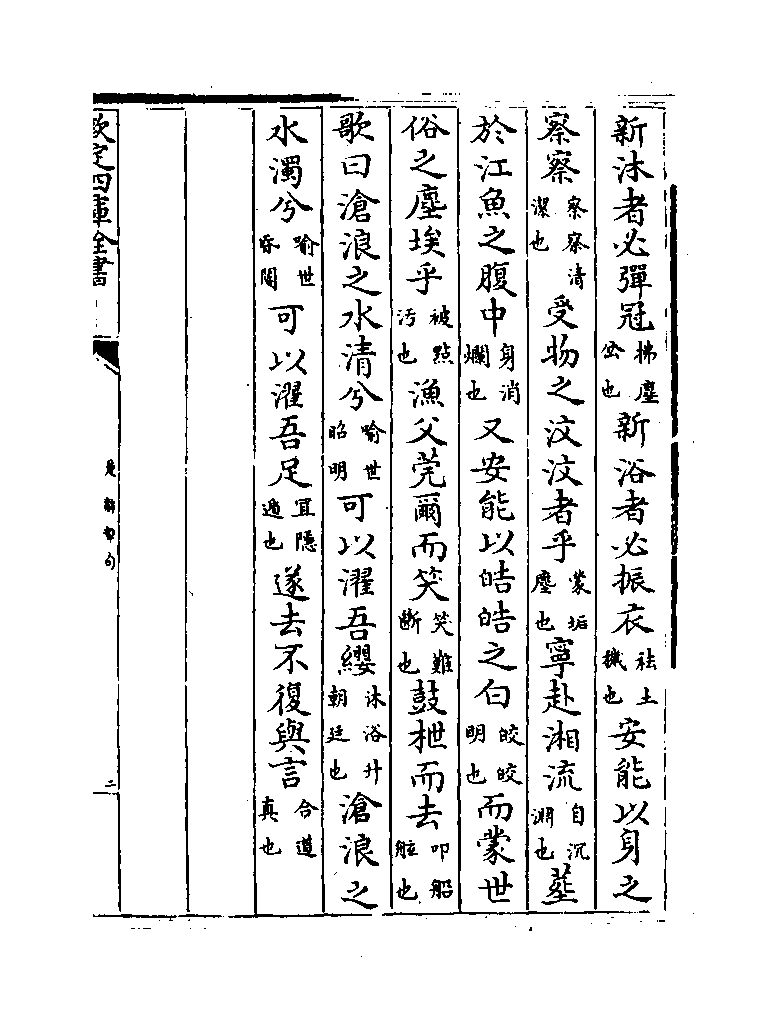 新沐者必彈冠拂塵坌也新浴者必振衣袪土穢也安能以身之
察察察察清潔也受物之汶汶者乎蒙垢塵也寧赴湘流自沉淵也塟
於江魚之腹中身消爛也又安能以皓皓之白皎皎明也而蒙世
俗之塵埃乎被㸃污也漁父莞爾而笑笑難斷也鼓枻而去叩船舷也
歌曰滄浪之水清兮喻世昭明可以濯吾纓沐浴升朝廷也滄浪之
水濁兮喻世昏闇可以濯吾足宜隱遁也遂去不復與言合道真也
欽定四庫全書
楚辭章句
二